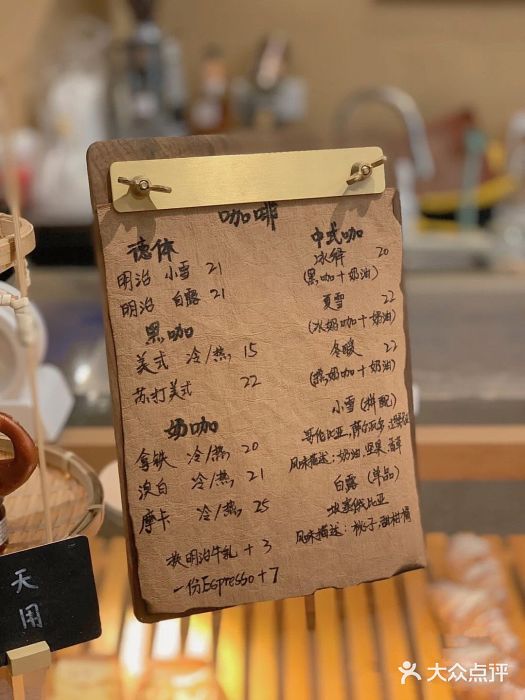 咖啡
德体
明治 小雪 21
明治 白露 21
黑咖
美式 冷/热 15
苏打美式 22
奶咖
拿铁 冷/热 20
澳白 冷/热 21
摩卡 冷/热 25
换明治牛乳 + 3
一份Espresso + 7
中式咖
冰绎 20
(黑咖十奶油)
夏雪 22
(冰奶咖十奶油)
冬暖 22
(热奶咖十奶油)
小雪 (拼配)
哥伦比亚,萨尔瓦多
风味描述:奶油,坚果
白露 (单品)
埃塞俄比亚
风味描述:桃子,甜柑橘
天
用
大众点评